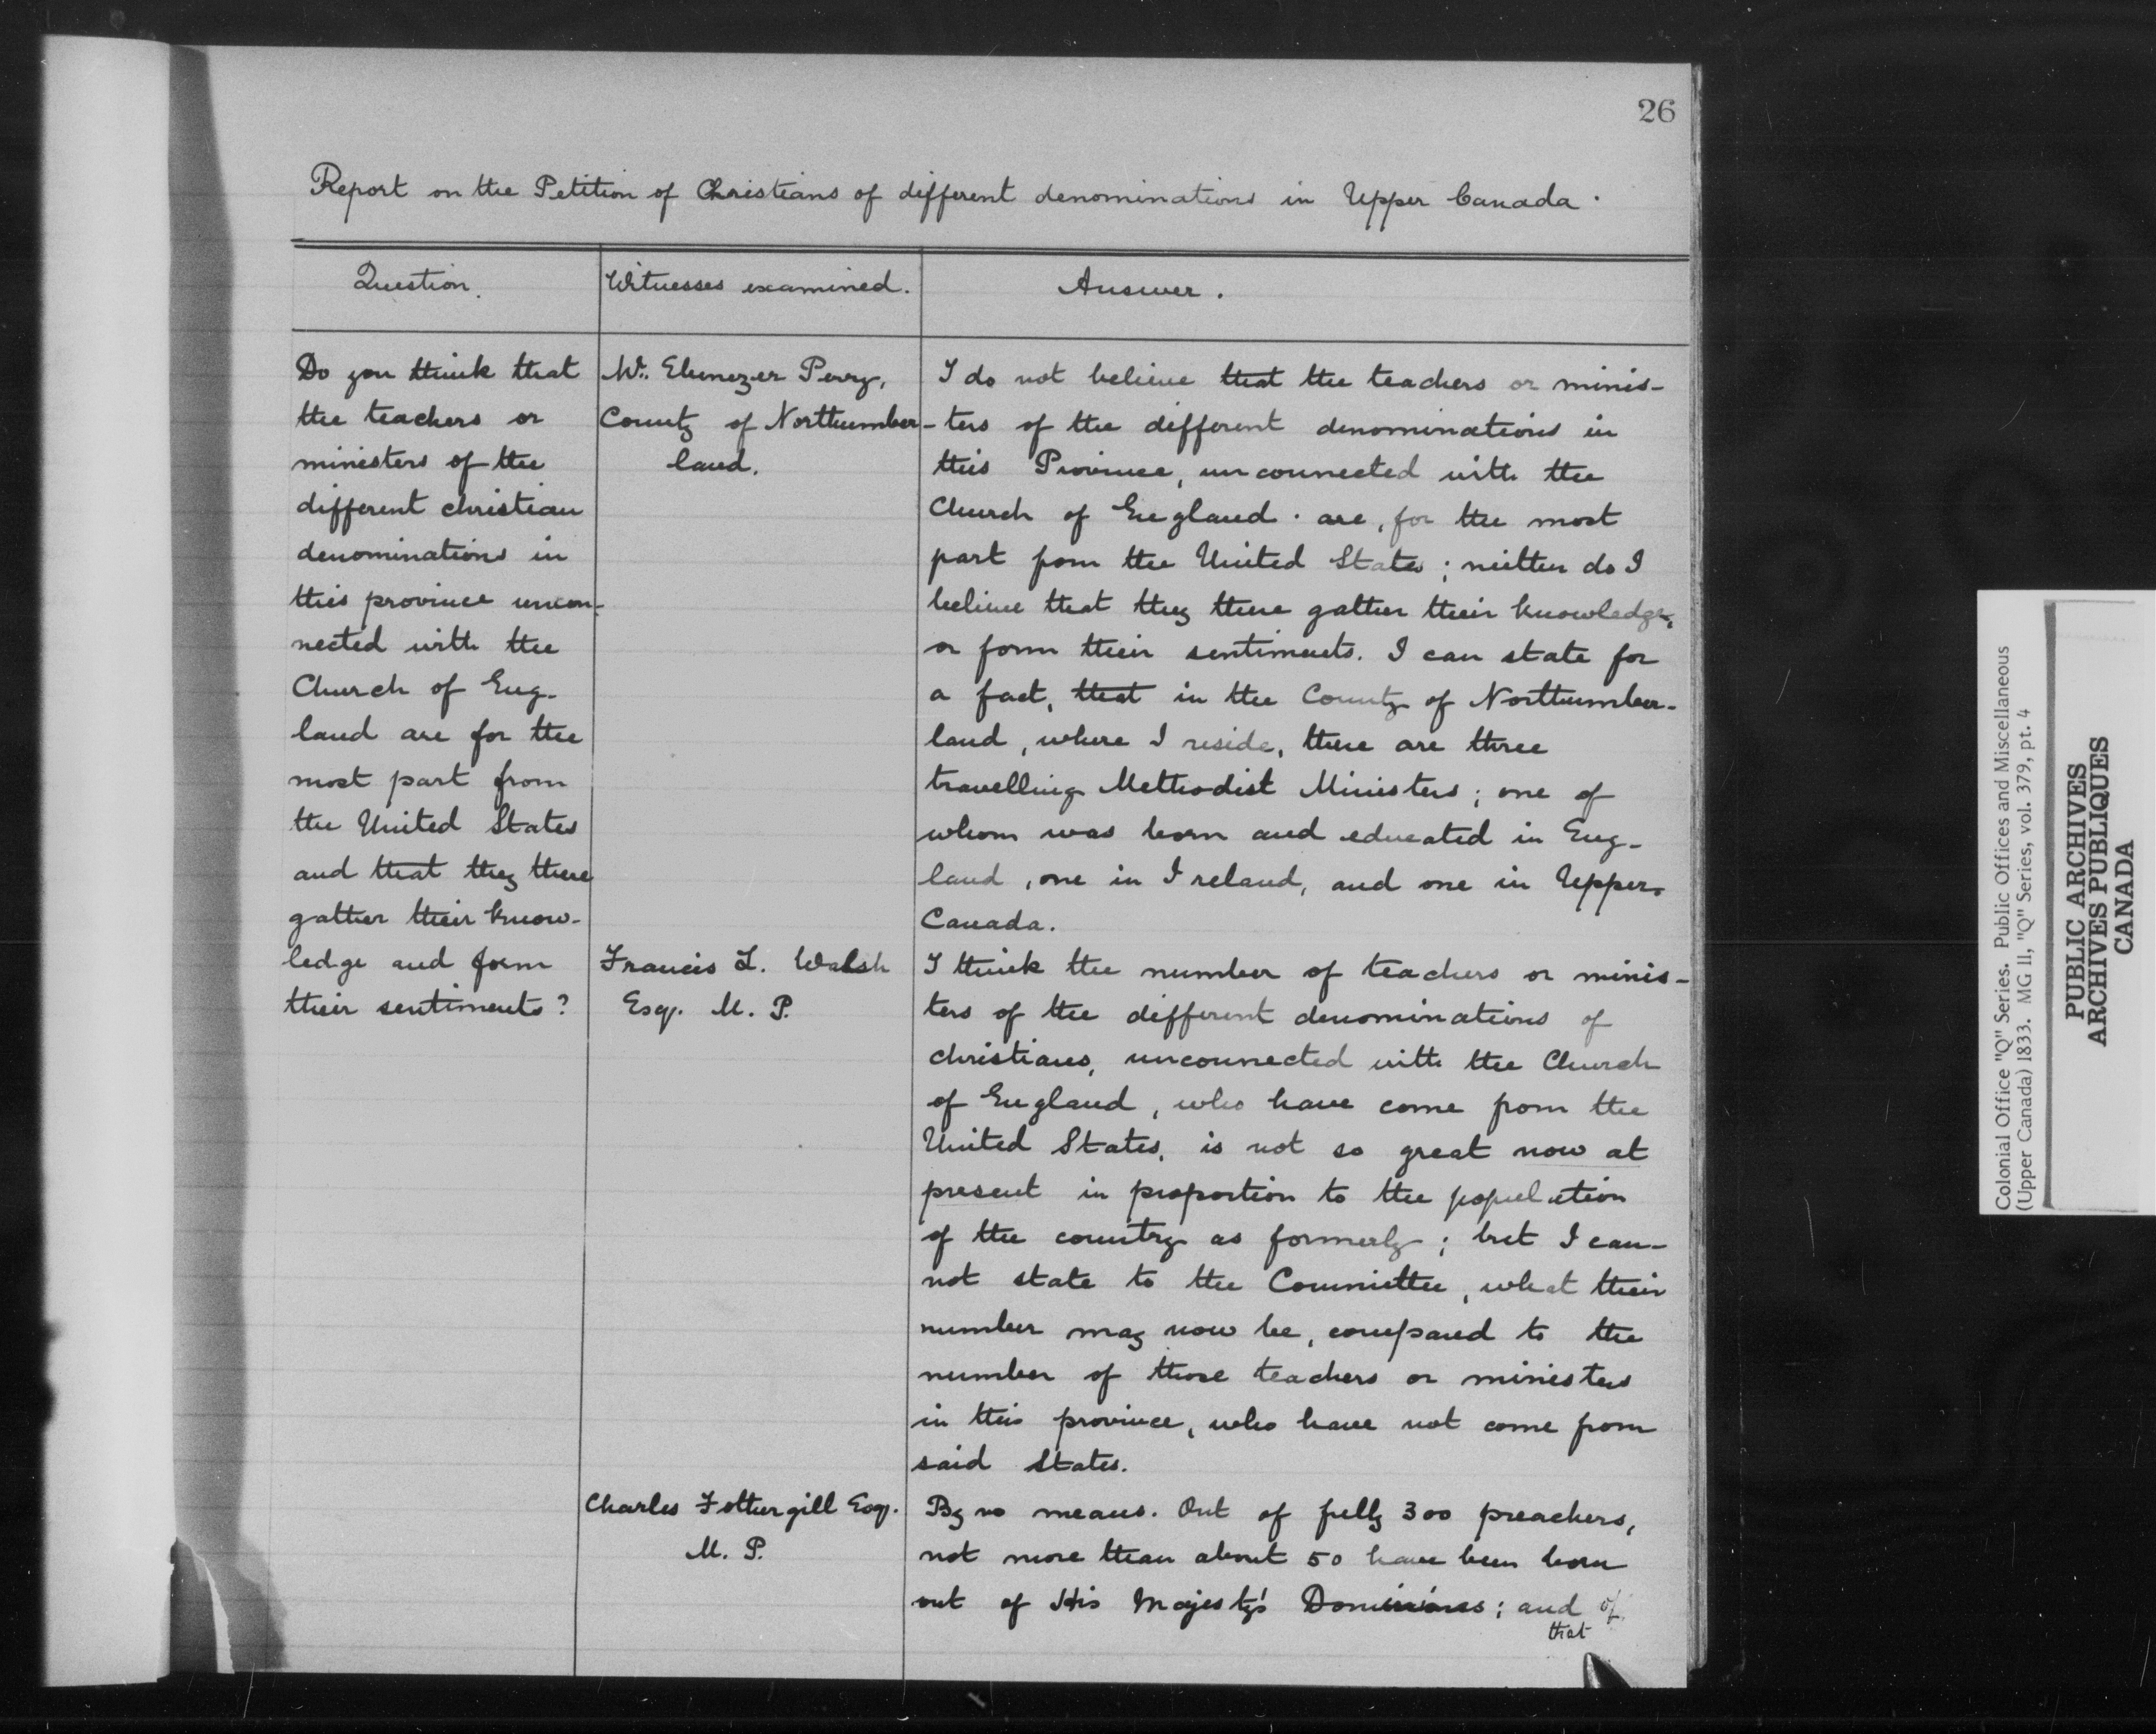 26
Report on the Petition of Christians of different denominations in Upper Canada.
Question.
Witnesses examined.
Answer.
Do you think that
the teachers or
ministers of the
different christian
denominations in
this province uncon-
nected with the
Church of Eng-
land are for the
most part from
the United States
and that they there
gather their know-
ledge and form
their sentiments?
Mr. Ebenezer Perry,
County of Northumber-
land.
I do not believe that the teachers or minis-
ters of the different denominations in
this Province, unconnected with the
Church of England. are, for the most
part from the United States; neither do I
believe that they there gather their knowledge,
or form their sentiments. I can state for
a fact, that in the County of Northumber-
land, where I reside, there are three
travelling Methodist Ministers; one of
whom was born and educated in Eng-
land, one in Ireland, and one in Upper
Canada.
Francis L. Walsh
Esq. M. P.
I think the number of teachers or minis-
ters of the different denominations of
christians, unconnected with the Church
of England, who have come from the
United States, is not so great now at
present in proportion to the population
of the country as formerly; but I can-
not state to the Committee, what their
number may now be, compared to the
number of those teachers or ministers
in this province, who have not come from
said States.
Charles Fothergill Esq.
M. P.
By no means. Out of fully 300 preachers,
not more than about 50 have been born
out of His Majesty's Dominions; and of
that
Colonial Office "Q" Series. Public Offices and Miscellaneous
(Upper Canada) 1833. MG 11, "Q" Series, vol. 379, pt. 4
PUBLIC ARCHIVES
ARCHIVES PUBLIQUES
CANADA